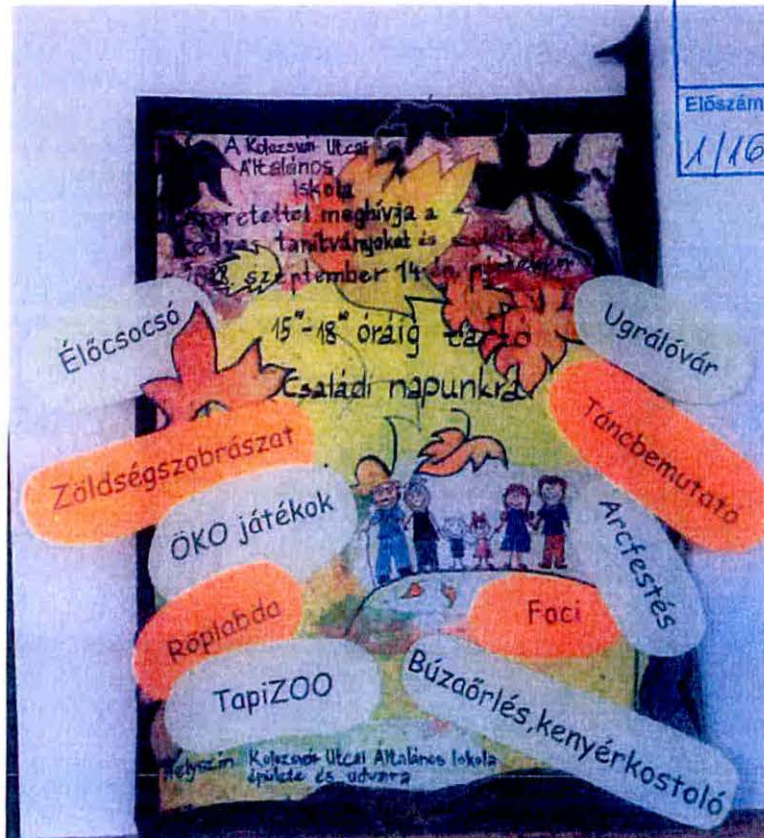 Előszám
1/16
A Kolozsvár Utcai
Általános
Iskola
szeretettel meghívja a
kedves tanítványokat és
szeptember 14-én
15⁰⁰-18⁰⁰ óráig tartó
Családi napunkra
Élőcsocsó
Ugrálóvár
Zöldségszobrászat
Táncbemutató
ÖKO játékok
Arcfestés
Röplabda
Foci
TapiZOO
Búzaőrlés,kenyérkostoló
Helyszín: Kolozsvár Utcai Általános Iskola
épülete és udvara